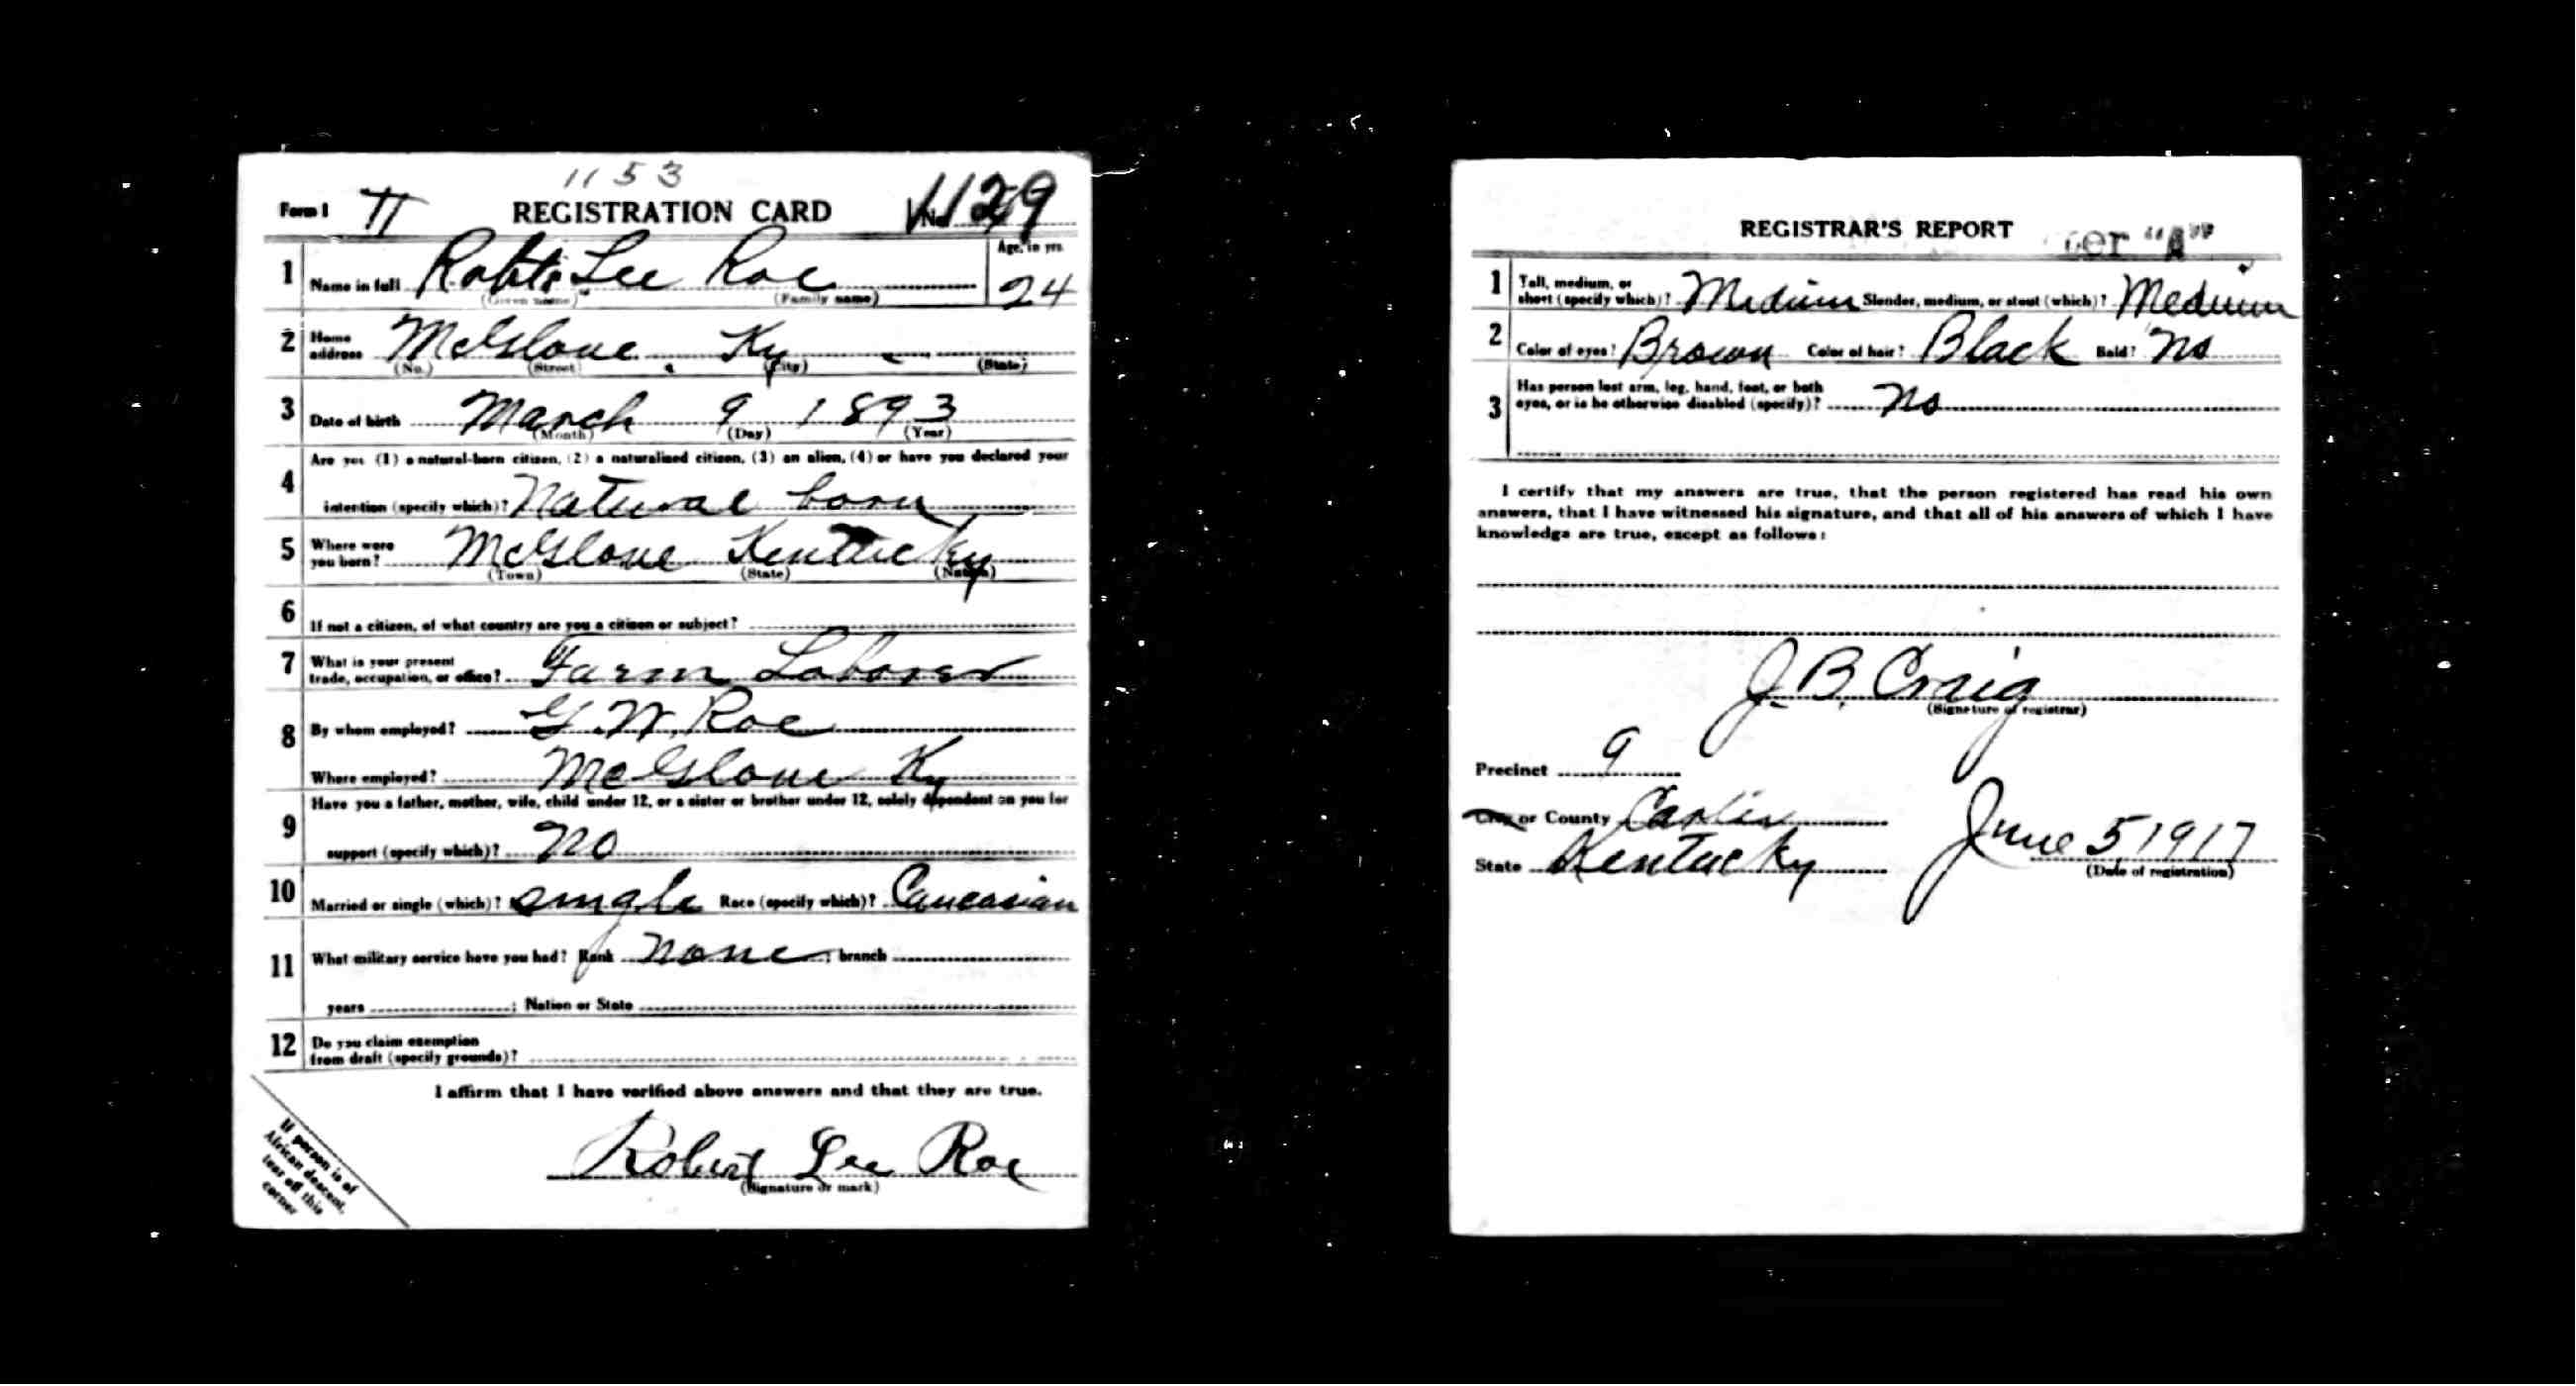 1153
Form 1 REGISTRATION CARD No. 1129
1 Name in full Robt. Lee Roe Age, in yrs. 24
(Given name) (Family name)
2 Home address McGlone Ky
(No.) (Street) (City) (State)
3 Date of birth March 9 1893
(Month) (Day) (Year)
4 Are you (1) a natural-born citizen, (2) a naturalized citizen, (3) an alien, (4) or have you declared your
intention (specify which)? Natural born
5 Where were you born? McGlone Kentucky
(Town) (State) (Nation)
6 If not a citizen, of what country are you a citizen or subject?
7 What is your present trade, occupation, or office? Farm Laborer
8 By whom employed? G. W. Roe
Where employed? McGlone Ky
9 Have you a father, mother, wife, child under 12, or a sister or brother under 12, solely dependent on you for
support (specify which)? No
10 Married or single (which)? Single Race (specify which)? Caucasian
11 What military service have you had? Rank none ; branch
years ; Nation or State
12 Do you claim exemption from draft (specify grounds)?
I affirm that I have verified above answers and that they are true.
Robert Lee Roe
(Signature or mark)
If person is of
African descent,
tear off this
corner
REGISTRAR'S REPORT
er "A"
1 Tall, medium, or short (specify which)? Medium Slender, medium, or stout (which)? Medium
2 Color of eyes? Brown Color of hair? Black Bald? No
3 Has person lost arm, leg, hand, foot, or both
eyes, or is he otherwise disabled (specify)? No
I certify that my answers are true, that the person registered has read his own
answers, that I have witnessed his signature, and that all of his answers of which I have
knowledge are true, except as follows:
J. B. Craig
(Signature of registrar)
Precinct 9
City or County Carter
State Kentucky June 5, 1917
(Date of registration)